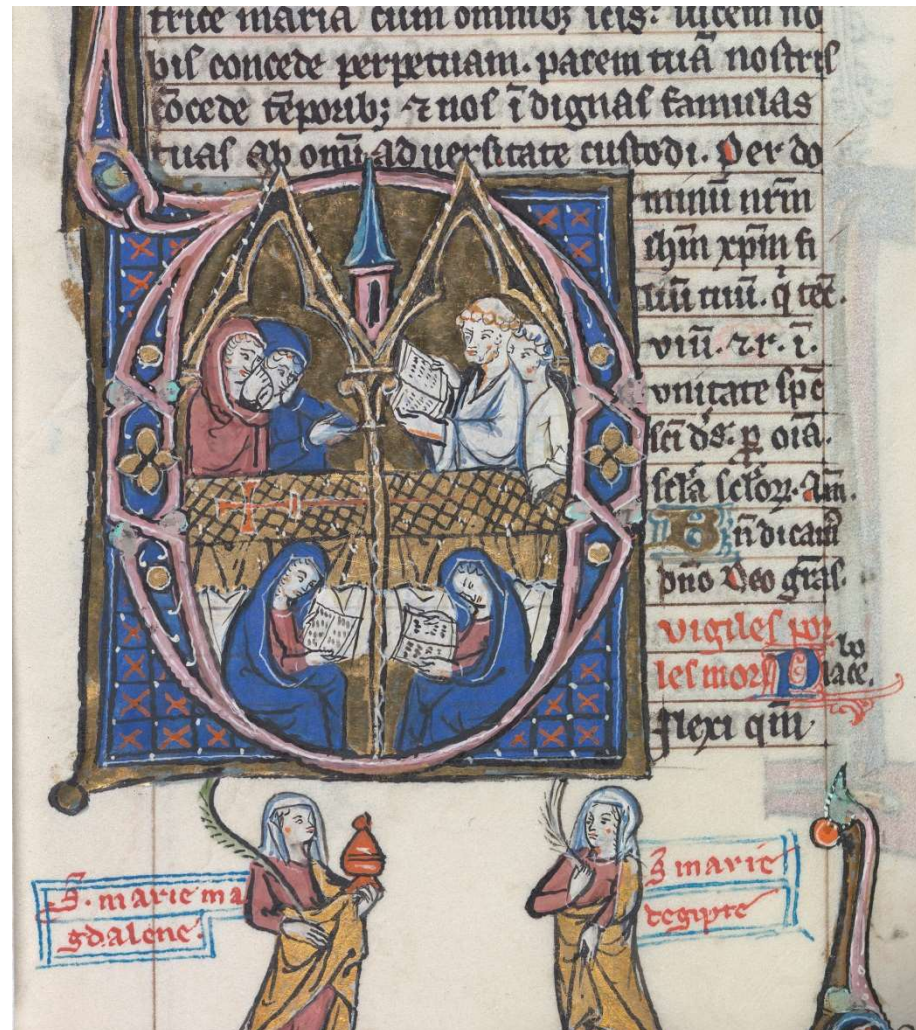 trice maria cum omnibꝫ scis: lucem no
bis concede perpetuam. pacem tuā nostris
cōcede tēporibꝫ ⁊ nos īdignas famulas
tuas ab omī aduersitate custodi. Per do
minū nrm̄
ihm̄ xpm̄ fi
liū tuū. q tec̄
viū. ⁊.r. ī.
vnitate spc̄
sci ds̄. ꝑ oīa
scl̄a scl̄oꝝ. Am̄.
Bn̄dicam̄
dn̄o Deo gras̄.
vigiles por
les mors Placebo
flexi qm̄
S. marie ma
gdalene.
S marie
degipte